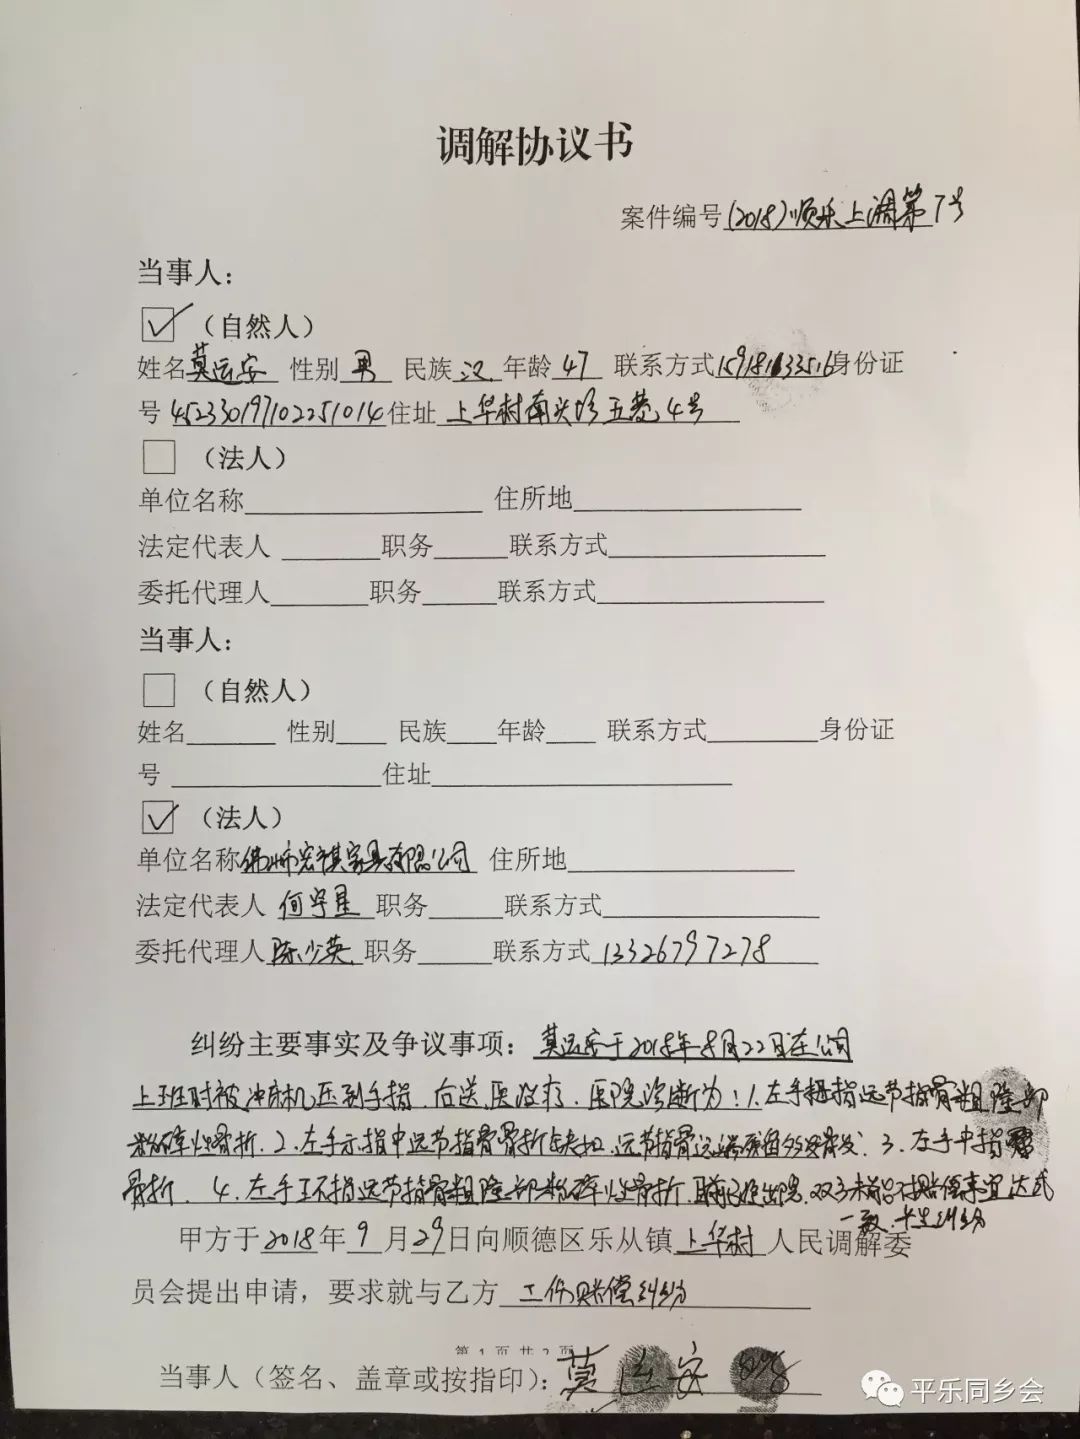 调解协议书
案件编号(2018)顺乐上调第7号
当事人：
（自然人）
姓名莫运安 性别 男 民族 汉 年龄 47 联系方式15918133516身份证
号 452330197102251014住址 上华村南兴坊五巷4号
（法人）
单位名称 住所地
法定代表人 职务 联系方式
委托代理人 职务 联系方式
当事人：
（自然人）
姓名 性别 民族 年龄 联系方式 身份证
号 住址
（法人）
单位名称佛山市宏祺家具有限公司 住所地
法定代表人 何守星 职务 联系方式
委托代理人陈少英 职务 联系方式 13326797278
纠纷主要事实及争议事项：莫运安于2018年8月22日在公司
上班时被冲床机压到手指，后送医治疗，医院诊断为：1.左手拇指远节指骨粗隆部
粉碎性骨折．2．左手示指中远节指骨骨折缺损，远节指骨远端残留 3．左手中指
骨折．4．左手环指远节指骨粗隆部粉碎性骨折．目前已经出院．双方未能就赔偿事宜达成
一致，产生纠纷
甲方于2018年 9 月29日向顺德区乐从镇上华村人民调解委
员会提出申请，要求就与乙方 工伤赔偿纠纷
第 1 页 共 2 页
当事人（签名、盖章或按指印）：莫运安
平乐同乡会